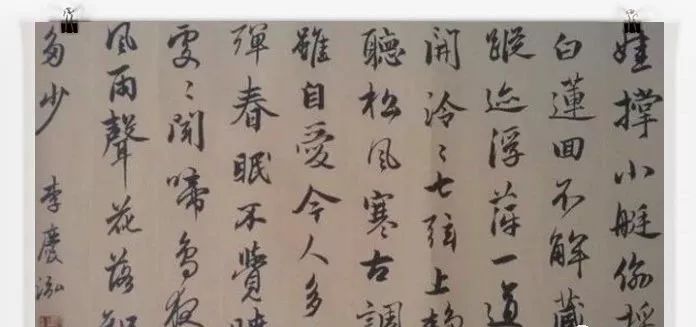 娃撑小艇偷採
白蓮回不解藏
蹤迹浮萍一道
開泠〻七弦上静
聽松風寒古調
雖自愛今人多
彈春眠不覺曉
處〻聞啼鳥夜
風雨聲花落知
多少
李慶泓